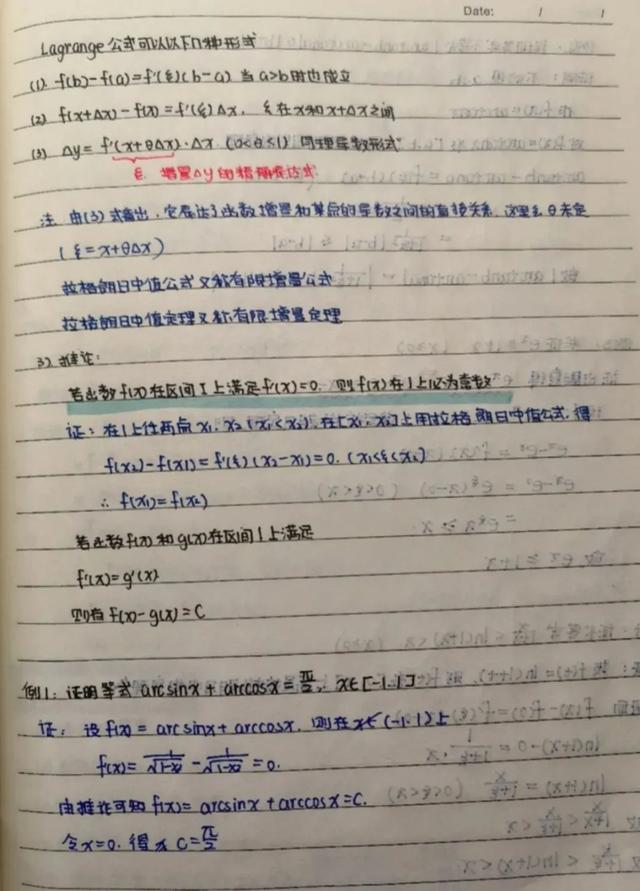 Date: / /
Lagrange公式可以以下几种形式
(1). f(b)-f(a)=f'(ξ)(b-a) 当a>b时也成立
(2) f(x+Δx)-f(x)=f'(ξ)Δx, ξ在x和x+Δx之间
(3) Δy=f'(x+θΔx)·Δx (0<θ<1) 同理导数形式
ξ 增量Δy的精确表达式
注 由(3)式看出,它表达了函数增量和某点的导数之间的直接关系.这里ξ,θ未定
(ξ=x+θΔx)
拉格朗日中值公式又称有限增量公式
拉格朗日中值定理又称有限增量定理
3) 推论:
若函数f(x)在区间I上满足f'(x)=0. 则f(x)在I上必为常数
证:在I上任两点x₁, x₂(x₁<x₂).在[x₁, x₂]上用拉格朗日中值公式,得
f(x₂)-f(x₁)=f'(ξ)(x₂-x₁)=0. (x₁<ξ<x₂)
∴ f(x₁)=f(x₂)
若函数f(x)和g(x)在区间I上满足
f'(x)=g'(x)
则有f(x)-g(x)=C
例1:证明等式arcsinx+arccosx=π/2, x∈[-1.1]
证: 设f(x)=arcsinx+arccosx.则在x∈(-1.1)上
f(x)=1/√(1-x²)-1/√(1-x²)=0.
由推论可知f(x)=arcsinx+arccosx=C.
令x=0.得 C=π/2